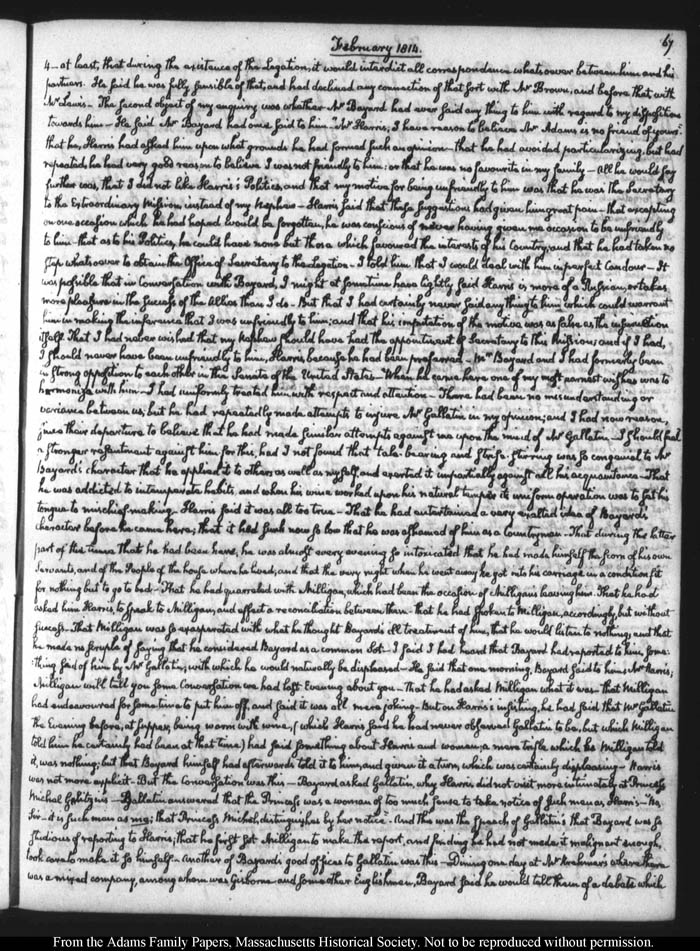 February 1814.
67
4_ at least, that during the existence of the Legation, it would interdict all correspondence whatsoever between him and his
partners. He said he was fully sensible of that, and had declined any connection of that sort with Mr Brown, and before that with
Mr Lewis_ The second object of my enquiry was whether Mr Bayard had ever said any thing to him with regard to my dispositions
towards him_ He said Mr Bayard had once said to him "Mr Harris, I have reason to believe Mr Adams is no friend of yours"_
that he, Harris had asked him upon what grounds he had formed such an opinion_ that he had avoided particularizing, but had
repeated, he had very good reason to believe I was not friendly to him; or that he was no favourite in my family_ All he would say
further was, that I did not like Harris's Politics, and that my motive for being unfriendly to him was that he was the Secretary
to the Extraordinary Mission, instead of my Nephew_ Harris said that these suggestions had given him great pain_ that excepting
on one occasion which he had hoped would be forgotten, he was conscious of never having given me occasion to be unfriendly
to him_ that as to his Politics, he could have none but those which favoured the interests of his Country, and that he had taken no
step whatsoever to obtain the Office of Secretary to the Legation_ I told him that I would deal with him in perfect Candour_ It
was possible that in Conversation with Bayard, I might at some time have lightly said Harris is more of a Russian, or takes
more pleasure in the success of the Allies than I do_ But that I had certainly never said any thing to him which could warrant
him in making the inference that I was unfriendly to him; and that his imputation of the motive was as false as the insinuation
itself. That I had never wished that my Nephew should have had the appointment of Secretary to this Mission; and if I had,
I should never have been unfriendly to him, Harris, because he had been preferred_ Mr Bayard and I had formerly been
in strong opposition to each other in the Senate of the United States_ When he came here one of my most earnest wishes was to
harmonize with him_ I had uniformly treated him with respect and attention_ There had been no misunderstanding or
variance between us; but he had repeatedly made attempts to injure Mr Gallatin in my opinion; and I had now reason,
since their departure to believe that he had made similar attempts against me upon the mind of Mr Gallatin_ I should feel
a stronger resentment against him for this, had I not found that tale-bearing and strife-stirring was so congenial to Mr
Bayard's character that he applied it to others as well as myself, and exerted it impartially against all his acquaintance_ That
he was addicted to intemperate habits, and when his wine worked upon his natural temper its uniform operation was to set his
tongue to mischief-making_ Harris said it was all too true_ That he had entertained a very exalted idea of Bayard's
character before he came here; that it had sunk now so low that he was ashamed of him as a Countryman_ That during the latter
part of the time that he had been here, he was almost every evening so intoxicated that he had made himself the scorn of his own
Servants, and of the People of the house where he lived, and that the very night when he went away he got into his carriage in a condition fit
for nothing but to go to bed_ That he had quarreled with Milligan, which had been the occasion of Milligan's leaving him. That he had
asked him Harris, to speak to Milligan, and effect a reconciliation between them_ that he had spoken to Milligan, accordingly, but without
success_ That Milligan was so exasperated with what he thought Bayard's ill treatment of him, that he would listen to nothing; and that
he made no scruple of saying that he considered Bayard as a common Sot_ I said I had heard that Bayard had reported to him some-
thing said of him by Mr Gallatin, with which he would naturally be displeased_ He said that one morning, Bayard said to him; Mr Harris;
Milligan will tell you some Conversation we had last Evening about you_ That he had asked Milligan what it was_ that Milligan
had endeavoured for some time to put him off, and said it was all mere joking_ But on Harris's insisting, he had said that Mr Gallatin
the Evening before, at supper, being warm with wine, (which Harris said he had never observed Gallatin to be, but which Milligan
told him he certainly had been at that time) had said something about Harris and women; a mere trifle which he Milligan told
it, was nothing; but that Bayard himself had afterwards told it to him, and given it a turn, which was certainly displeasing_ Harris
was not more explicit_ But the Conversation was this_ Bayard asked Gallatin, why Harris did not visit more intimately at Princess
Michel Galitzin's_ Gallatin answered that the Princess was a woman of too much sense to take notice of such men as Harris_ No.
Sir_ it is such men as me, that Princess Michel, distinguishes by her notice_ And this was the speech of Gallatin's, that Bayard was so
studious of reporting to Harris; that he first set Milligan to make the report, and finding he had not made it malignant enough,
took care to make it so himself_ Another of Bayard's good offices to Gallatin was this_ Dining one day at Mr Krehmer's where there
was a mixed company, among whom was Gisborne and some other Englishmen, Bayard said he would tell them of a debate which
From the Adams Family Papers, Massachusetts Historical Society. Not to be reproduced without permission.